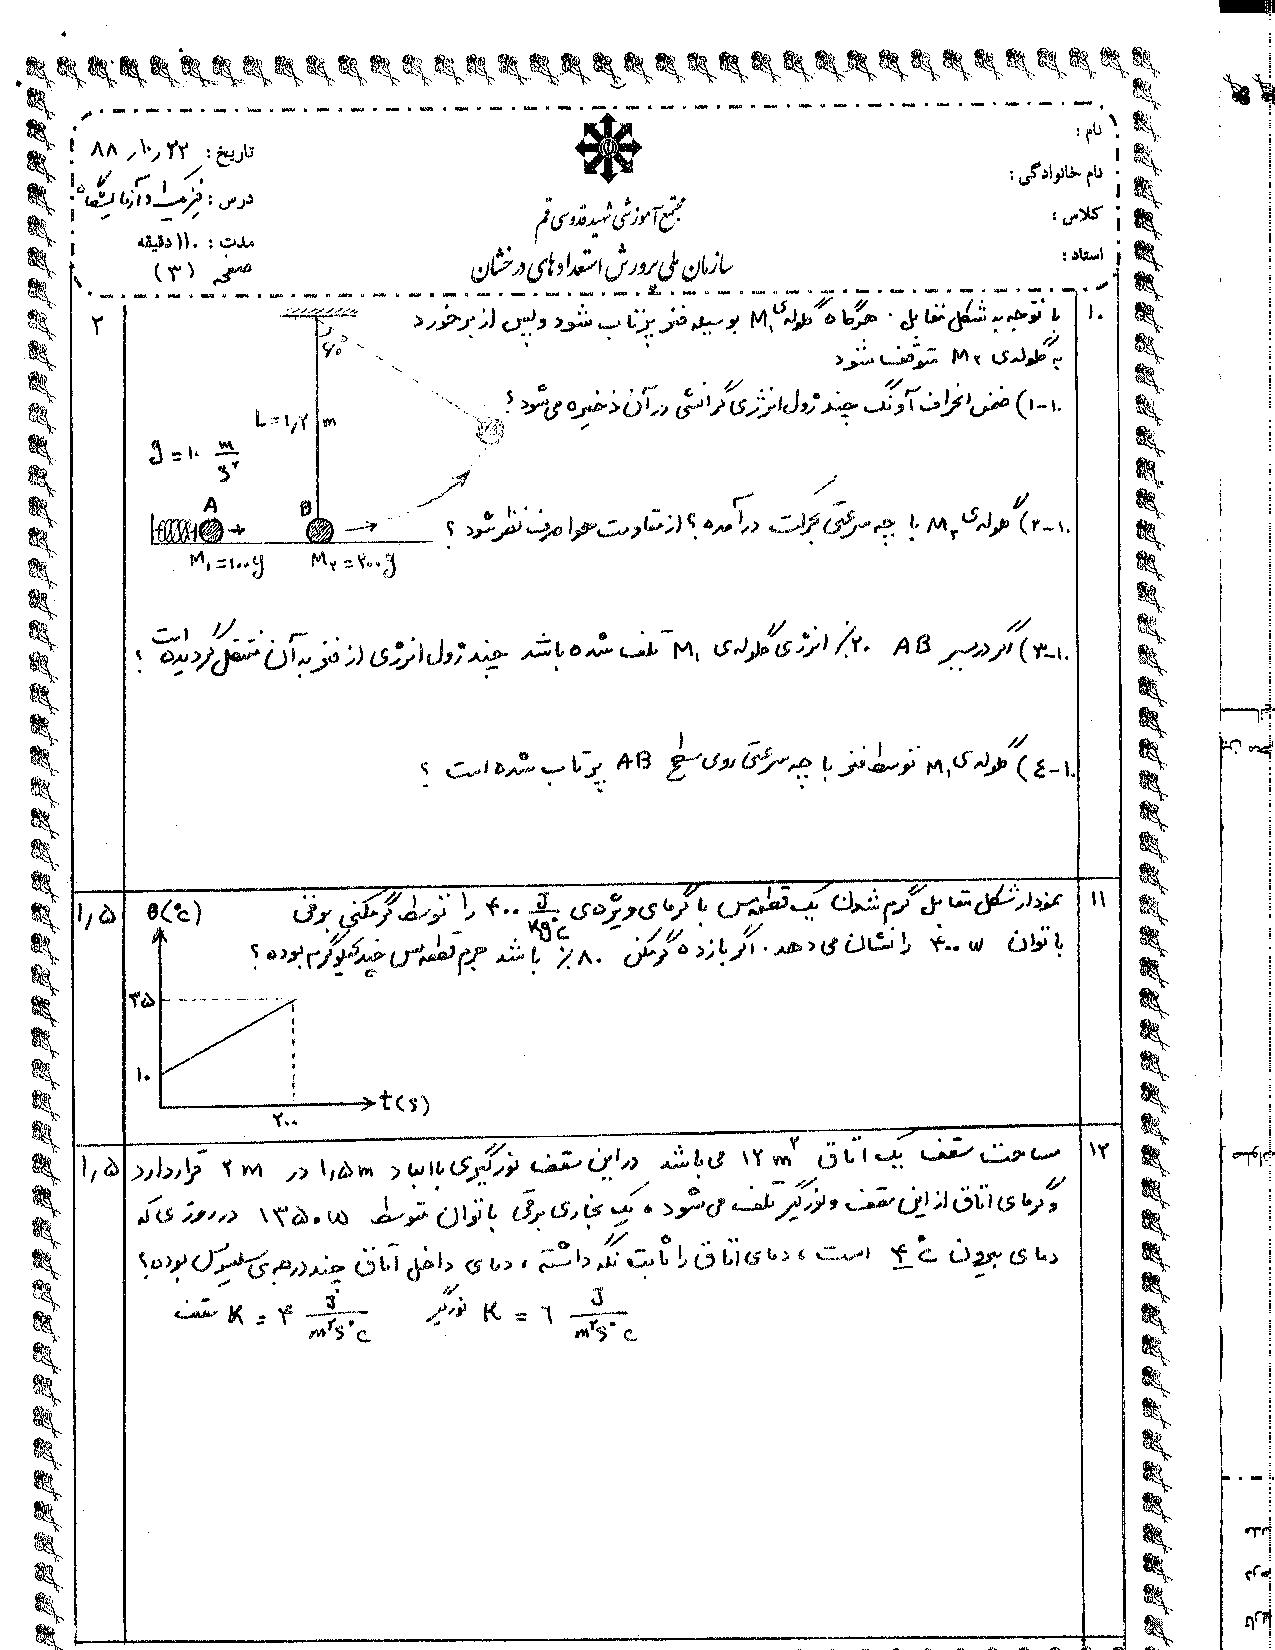 نام :
نام خانوادگی :
کلاس :
استاد :
مجتمع آموزشی شهید قدوسی قم
سازمان ملی پرورش استعدادهای درخشان
تاریخ : ۸۸٫۱۰٫۲۲
درس : فیزیک ۱ و آزمایشگاه
مدت : ۱۱۰ دقیقه
صفحه (۳)
۱۰ با توجه به شکل مقابل . هرگاه گلوله‌ی M₁ بوسیله فنر پرتاب شود و پس از برخورد ۲
به گلوله‌ی M۲ متوقف شود
۱۰-۱) ضمن انحراف آونگ چند ژول انرژی گرانشی در آن ذخیره می‌شود ؟
۱۰-۲) گلوله‌ی M۲ با چه سرعتی بحرکت درآمده ؟ از مقاومت هوا صرف نظر شود ؟
۶۰°
L = ۱٫۲ m
g = ۱۰ m/s²
A B
M₁ = ۱۰۰g M۲ = ۲۰۰g
۱۰-۳) اگر در مسیر AB ۲۰٪ انرژی گلوله‌ی M₁ تلف شده باشد چند ژول انرژی از فنر به آن منتقل گردیده است ؟
۱۰-٤) گلوله‌ی M₁ توسط فنر با چه سرعتی روی سطح AB پرتاب شده است ؟
۱۱ نمودار شکل مقابل گرم شدن یک قطعه مس با گرمای ویژه‌ی ۴۰۰ J/kg°c را توسط گرمکنی برقی ۱٫۵
با توان ۴۰۰ w را نشان می دهد . اگر بازده گرمکن ۸۰٪ باشد جرم قطعه مس چند کیلوگرم بوده ؟
θ(°c)
۳۵
۱۰
۲۰۰
t(s)
۱۲ مساحت سقف یک اتاق ۱۲ m² می باشد در این سقف نورگیری با ابعاد ۱٫۵m در ۲m قرار دارد ۱٫۵
و گرمای اتاق از این سقف و نورگیر تلف می شود ، یک بخاری برقی با توان متوسط ۱۳۵۰w در روزی که
دمای بیرون ۴°c است ، دمای اتاق را ثابت نگه داشته ، دمای داخل اتاق چند درجه‌ی سلسیوس بوده ؟
نورگیر K = ٦ J/m²s°c سقف K = ۴ J/m²s°c